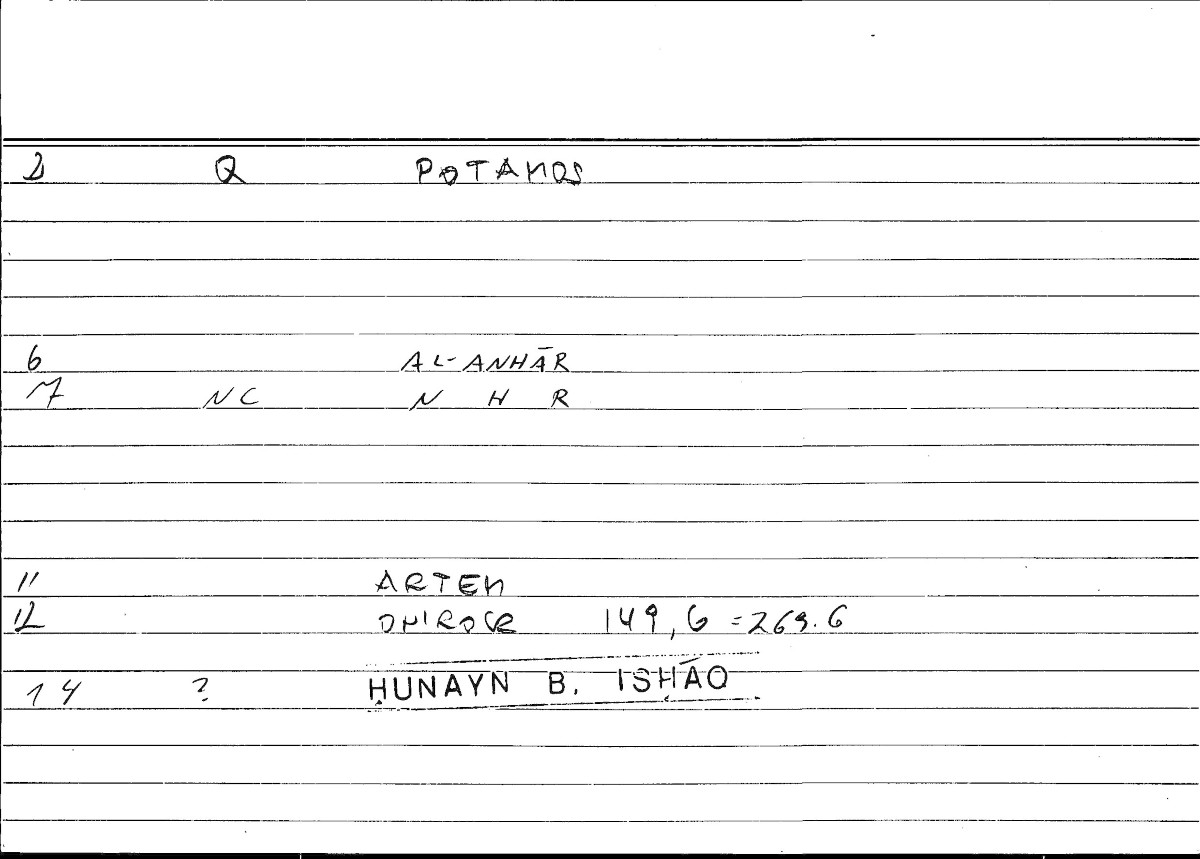 2 Q POTAMOS
6 AL-ANHĀR
7 NC N H R
11 ARTEM
12 ONIROCR 149,6 = 269.6
14 ? ḤUNAYN B. ISḤĀQ